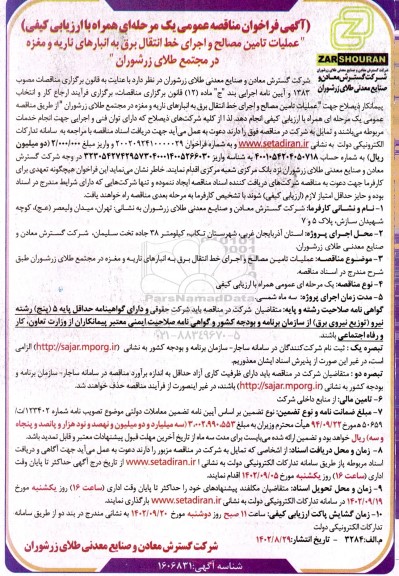 (آگهی فراخوان مناقصه عمومی یک مرحله‌ای همراه با ارزیابی کیفی)
"عملیات تامین مصالح و اجرای خط انتقال برق به انبارهای ناریه و مغزه
در مجتمع طلای زرشوران"
ZARSHOURAN
شرکت گسترش معادن و صنایع معدنی طلای زرشوران
شرکت گسترش معادن و صنایع معدنی طلای زرشوران در نظر دارد با عنایت به قانون برگزاری مناقصات مصوب
۱۳۸۳ و آیین نامه اجرایی بند "ج" ماده (۱۲) قانون برگزاری مناقصات، برگزاری فرآیند ارجاع کار و انتخاب
پیمانکار ذیصلاح جهت "عملیات تامین مصالح و اجرای خط انتقال برق به انبارهای ناریه و مغزه در مجتمع طلای زرشوران" از طریق مناقصه
عمومی یک مرحله ای همراه با ارزیابی کیفی انجام دهد. لذا از کلیه شرکت‌های ذیصلاح که دارای توان فنی و اجرایی جهت انجام خدمات
مربوطه می‌باشند و تمایل به شرکت در مناقصه فوق را دارند دعوت به عمل می‌آید جهت دریافت اسناد مناقصه با مراجعه به سامانه تدارکات
الکترونیکی دولت به نشانی www.setadiran.ir به شماره فراخوان ۲۰۰۲۰۹۲۴۱۰۰۰۰۰۲۹ و واریز مبلغ ۲/۰۰۰/۰۰۰ (دو میلیون
ریال) به شماره حساب ۴۰۰۱۰۵۴۲۰۴۰۵۰۷۱۸ به شناسه واریز در وجه شرکت گسترش
معادن و صنایع معدنی طلای زرشوران نزد بانک مرکزی شعبه مرکزی اقدام نمایند. خاطر نشان می‌نماید این فراخوان هیچگونه تعهدی برای
کارفرما جهت دعوت به مناقصه شرکت‌های دریافت کننده اسناد مناقصه ایجاد ننموده و تنها شرکت‌هایی که دارای شرایط مندرج در اسناد
بوده و حایز حداقل امتیاز لازم (ارزیابی کیفی) شوند با تشخیص کارفرما به مرحله بعدی مناقصه راه خواهند یافت.
۱- نام و نشانی کارفرما: شرکت گسترش معادن و صنایع معدنی طلای زرشوران به نشانی: تهران، میدان ولیعصر (عج)، کوچه
شهیدان سازش، پلاک ۵ و ۷
۲- محل اجرای پروژه: استان آذربایجان غربی، شهرستان تکاب، کیلومتر ۳۸ جاده تخت سلیمان، شرکت گسترش معادن و
صنایع معدنی طلای زرشوران.
۳- موضوع مناقصه: عملیات تامین مصالح و اجرای خط انتقال برق به انبارهای ناریه و مغزه در مجتمع زرشوران طبق
شرح مندرج در اسناد مناقصه.
۴- نوع مناقصه: یک مرحله ای عمومی همراه با ارزیابی کیفی
۵- مدت زمان اجرای پروژه: سه ماه شمسی.
گواهی نامه صلاحیت رشته و پایه: متقاضیان شرکت در مناقصه باید شرکت حقوقی و دارای گواهینامه حداقل پایه ۵ (پنج) رشته
نیرو (توزیع نیروی برق) از سازمان برنامه و بودجه کشور و گواهی نامه صلاحیت ایمنی معتبر پیمانکاران از وزارت تعاون، کار
و رفاه اجتماعی باشند.
تبصره یک: ثبت نام شرکت‌کنندگان در سامانه ساجار- سازمان برنامه و بودجه کشور به نشانی (http://sajar.mporg.ir) الزامی
است، در غیر این صورت از پذیرش اسناد ایشان معذوریم.
تبصره دو: متقاضیان شرکت در مناقصه باید دارای ظرفیت کاری آزاد حداقل به اندازه برآورد مناقصه در سامانه ساجار- سازمان برنامه و
بودجه کشور به نشانی (http://sajar.mporg.ir) باشند، در غیر اینصورت از فرآیند مناقصه حذف خواهند شد.
۶- تامین مالی: از منابع داخلی شرکت
۷- مبلغ ضمانت نامه و نوع تضمین: نوع تضمین بر اساس آیین نامه تضمین معاملات دولتی موضوع تصویب نامه شماره ۱۲۳۴۰۲/ت
۵۰۶۵۹ ه‍ مورخ ۹۴/۰۹/۲۲ هیأت محترم وزیران به مبلغ ۳،۰۰۲،۹۹۰،۵۵۳ (سه میلیارد و دو میلیون و نهصد و نود هزار و پانصد و پنجاه
و سه) ریال خواهد بود و تضمین ارائه شده می‌بایست برای مدت سه ماه از تاریخ آخرین مهلت قبول پیشنهادات معتبر و قابل تمدید باشد.
۸- زمان و محل دریافت اسناد: از اشخاصی که تمایل به شرکت در مناقصه مزبور را دارند دعوت به عمل می‌آید جهت آگاهی و دریافت
اسناد مربوطه پاز طریق سامانه تدارکات الکترونیکی دولت به نشانی www.setadiran.ir از تاریخ درج آگهی حداکثر تا پایان وقت
اداری (ساعت ۱۶) روز یکشنبه مورخ ۱۴۰۲/۰۹/۰۵ اقدام نمایند.
۹- زمان و محل تحویل اسناد: متقاضیان مکلفند پیشنهادهای خود را حداکثر تا پایان وقت اداری (ساعت ۱۶) روز یکشنبه مورخ
۱۴۰۲/۰۹/۱۹ در سامانه تدارکات الکترونیکی دولت به نشانی www.setadiran.ir بارگذاری نمایند.
۱۰- زمان گشایش پاکت ارزیابی کیفی: ساعت ۱۱ صبح روز دوشنبه مورخ ۱۴۰۲/۰۹/۲۰ به نشانی مندرج در بند دو از طریق سامانه
تدارکات الکترونیکی دولت
م.الف: ۳۲۸۴ - تاریخ انتشار: ۱۴۰۲/۸/۲۹
شرکت گسترش معادن و صنایع معدنی طلای زرشوران
شناسه آگهی: ۱۶۰۶۸۳۱